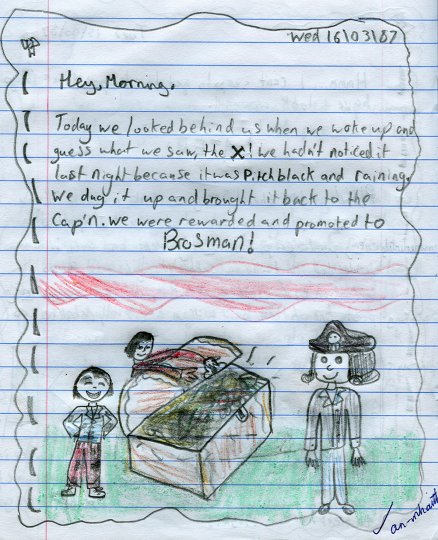 Wed 16/03/87
Hey, Morning.
Today we looked behind us when we woke up and
guess what we saw, the X! we hadn't noticed it
last night because it was Pitch black and raining.
We dug it up and brought it back to the
Cap'n. We were rewarded and promoted to
Brosman!
an-mhaith